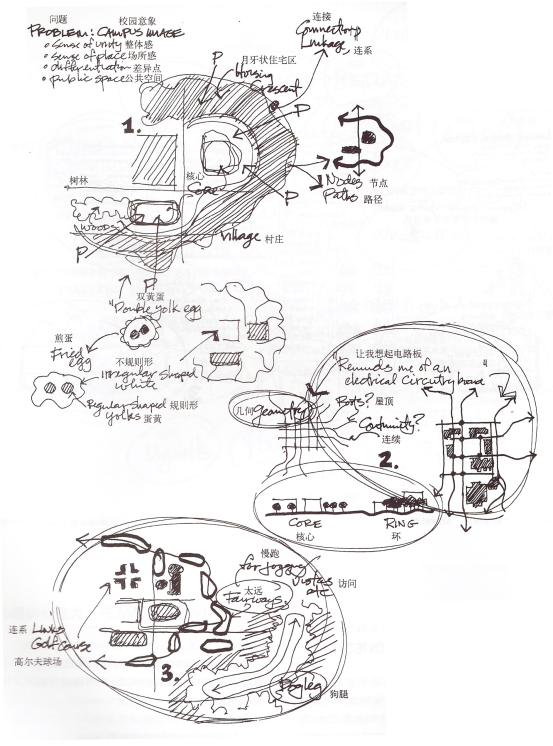 问题 校园意象
PROBLEM: CAMPUS IMAGE
sense of unity 整体感
sense of place 场所感
differentiation 差异点
public space 公共空间
连接
Connections
Linkage 连系
P
月牙状住宅区
Housing
Crescent
P
P
1.
核心
Core
树林
WOODS
P
Nodes 节点
Paths 路径
Village 村庄
P
P
双黄蛋
"Double yolk egg
煎蛋
Fried
egg
不规则形
irregular shaped
white
Regular shaped 规则形
yolks 蛋黄
让我想起电路板
"Reminds me of an
electrical circuitry board"
几何 geometry
Roofs? 屋顶
Continuity?
连续
2.
CORE
核心
RING
环
慢跑
for jogging
vistas 访问
etc
太远
Fairways
连系 Links
Golf course
高尔夫球场
3.
Dogleg 狗腿